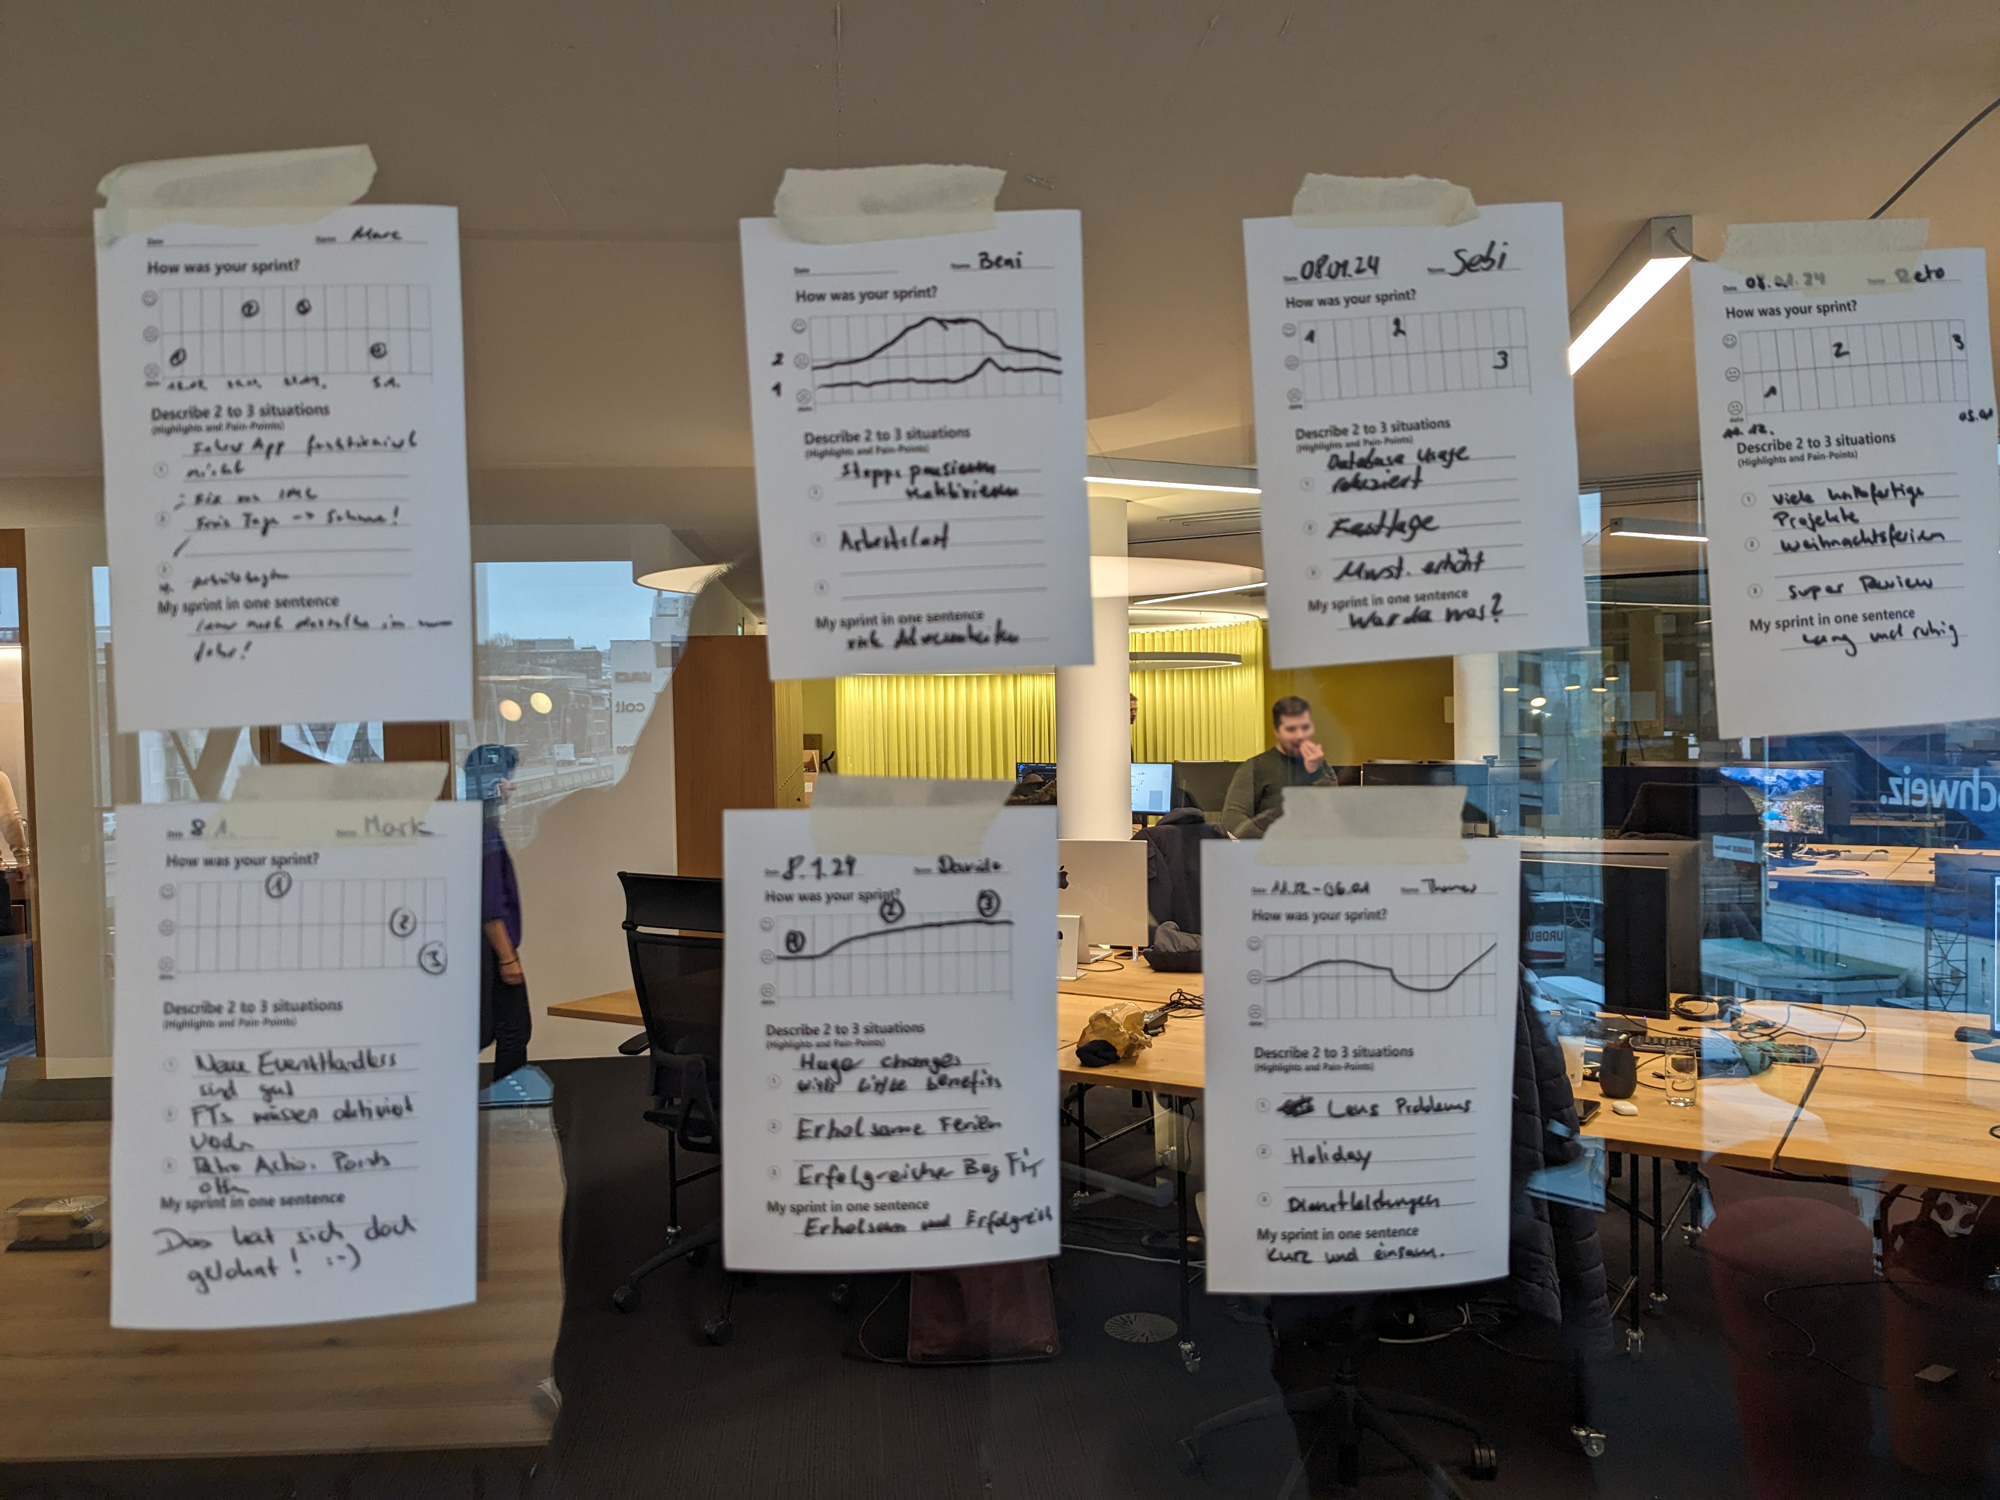 Date
Name Marc
How was your sprint?
Describe 2 to 3 situations
(Highlights and Pain-Points)
App funktioniert
nicht
Tage -> Schnee!
My sprint in one sentence
Date
Name Beni
How was your sprint?
2
1
date
Describe 2 to 3 situations
(Highlights and Pain-Points)
1 Stopps pausieren
reaktivieren
2 Arbeitslast
My sprint in one sentence
viele Abwesenheiten
Date 08.01.24 Name Sebi
How was your sprint?
1 2
3
date
Describe 2 to 3 situations
(Highlights and Pain-Points)
Database Usage
1 reduziert
2 Festtage
3 Mwst. erhöht
My sprint in one sentence
War da was?
Date 08.01.24 Name Reto
How was your sprint?
2 3
1
date
11.12. 05.01
Describe 2 to 3 situations
(Highlights and Pain-Points)
1 viele halbfertige
Projekte
2 Weihnachtsferien
3 Super Review
My sprint in one sentence
Lang und ruhig
Date 8 1. Name Mark
How was your sprint?
1
2
3
date
Describe 2 to 3 situations
(Highlights and Pain-Points)
1 Neue EventHandlers
sind gut
2 FTs müssen aktiviert
3 Retro Action Points
offen
My sprint in one sentence
Das hat sich doch
gelohnt! :-)
Date 8.1.24 Name Davide
How was your sprint?
1 2 3
date
Describe 2 to 3 situations
(Highlights and Pain-Points)
Huge changes
1 with little benefits
2 Erholsame Ferien
3 Erfolgreicher Bug Fix
My sprint in one sentence
Erholsam und Erfolgreich
Date 11.12-06.01 Name Thomas
How was your sprint?
date
Describe 2 to 3 situations
(Highlights and Pain-Points)
1 Lens Problems
2 Holiday
3 Dienstleistungen
My sprint in one sentence
Kurz und einsam.
schweiz.